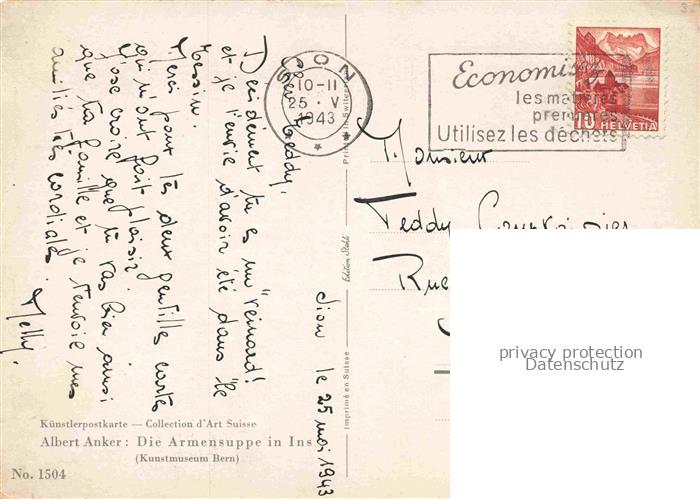 SION
10-II
25 . V
1943
Economisez
les matières
premières
Utilisez les déchets
10 HELVETIA
Sion le 25 mai 1943
Cher Teddy,
Décidément tu es un "veinard!
et je t'envie d'avoir été dans le
Tessin.
Merci pour tes deux gentilles cartes
qui m'ont fait plaisir.
J'ose croire que tu vas bien ainsi
que ta famille et je t'envoie mes
amitiés très cordiales.
Melly.
Monsieur
Teddy
Rue
Printed in Switzerland
Edition Stehli
Imprimé en Suisse
Künstlerpostkarte — Collection d'Art Suisse
Albert Anker: Die Armensuppe in Ins
(Kunstmuseum Bern)
No. 1504
privacy protection
Datenschutz